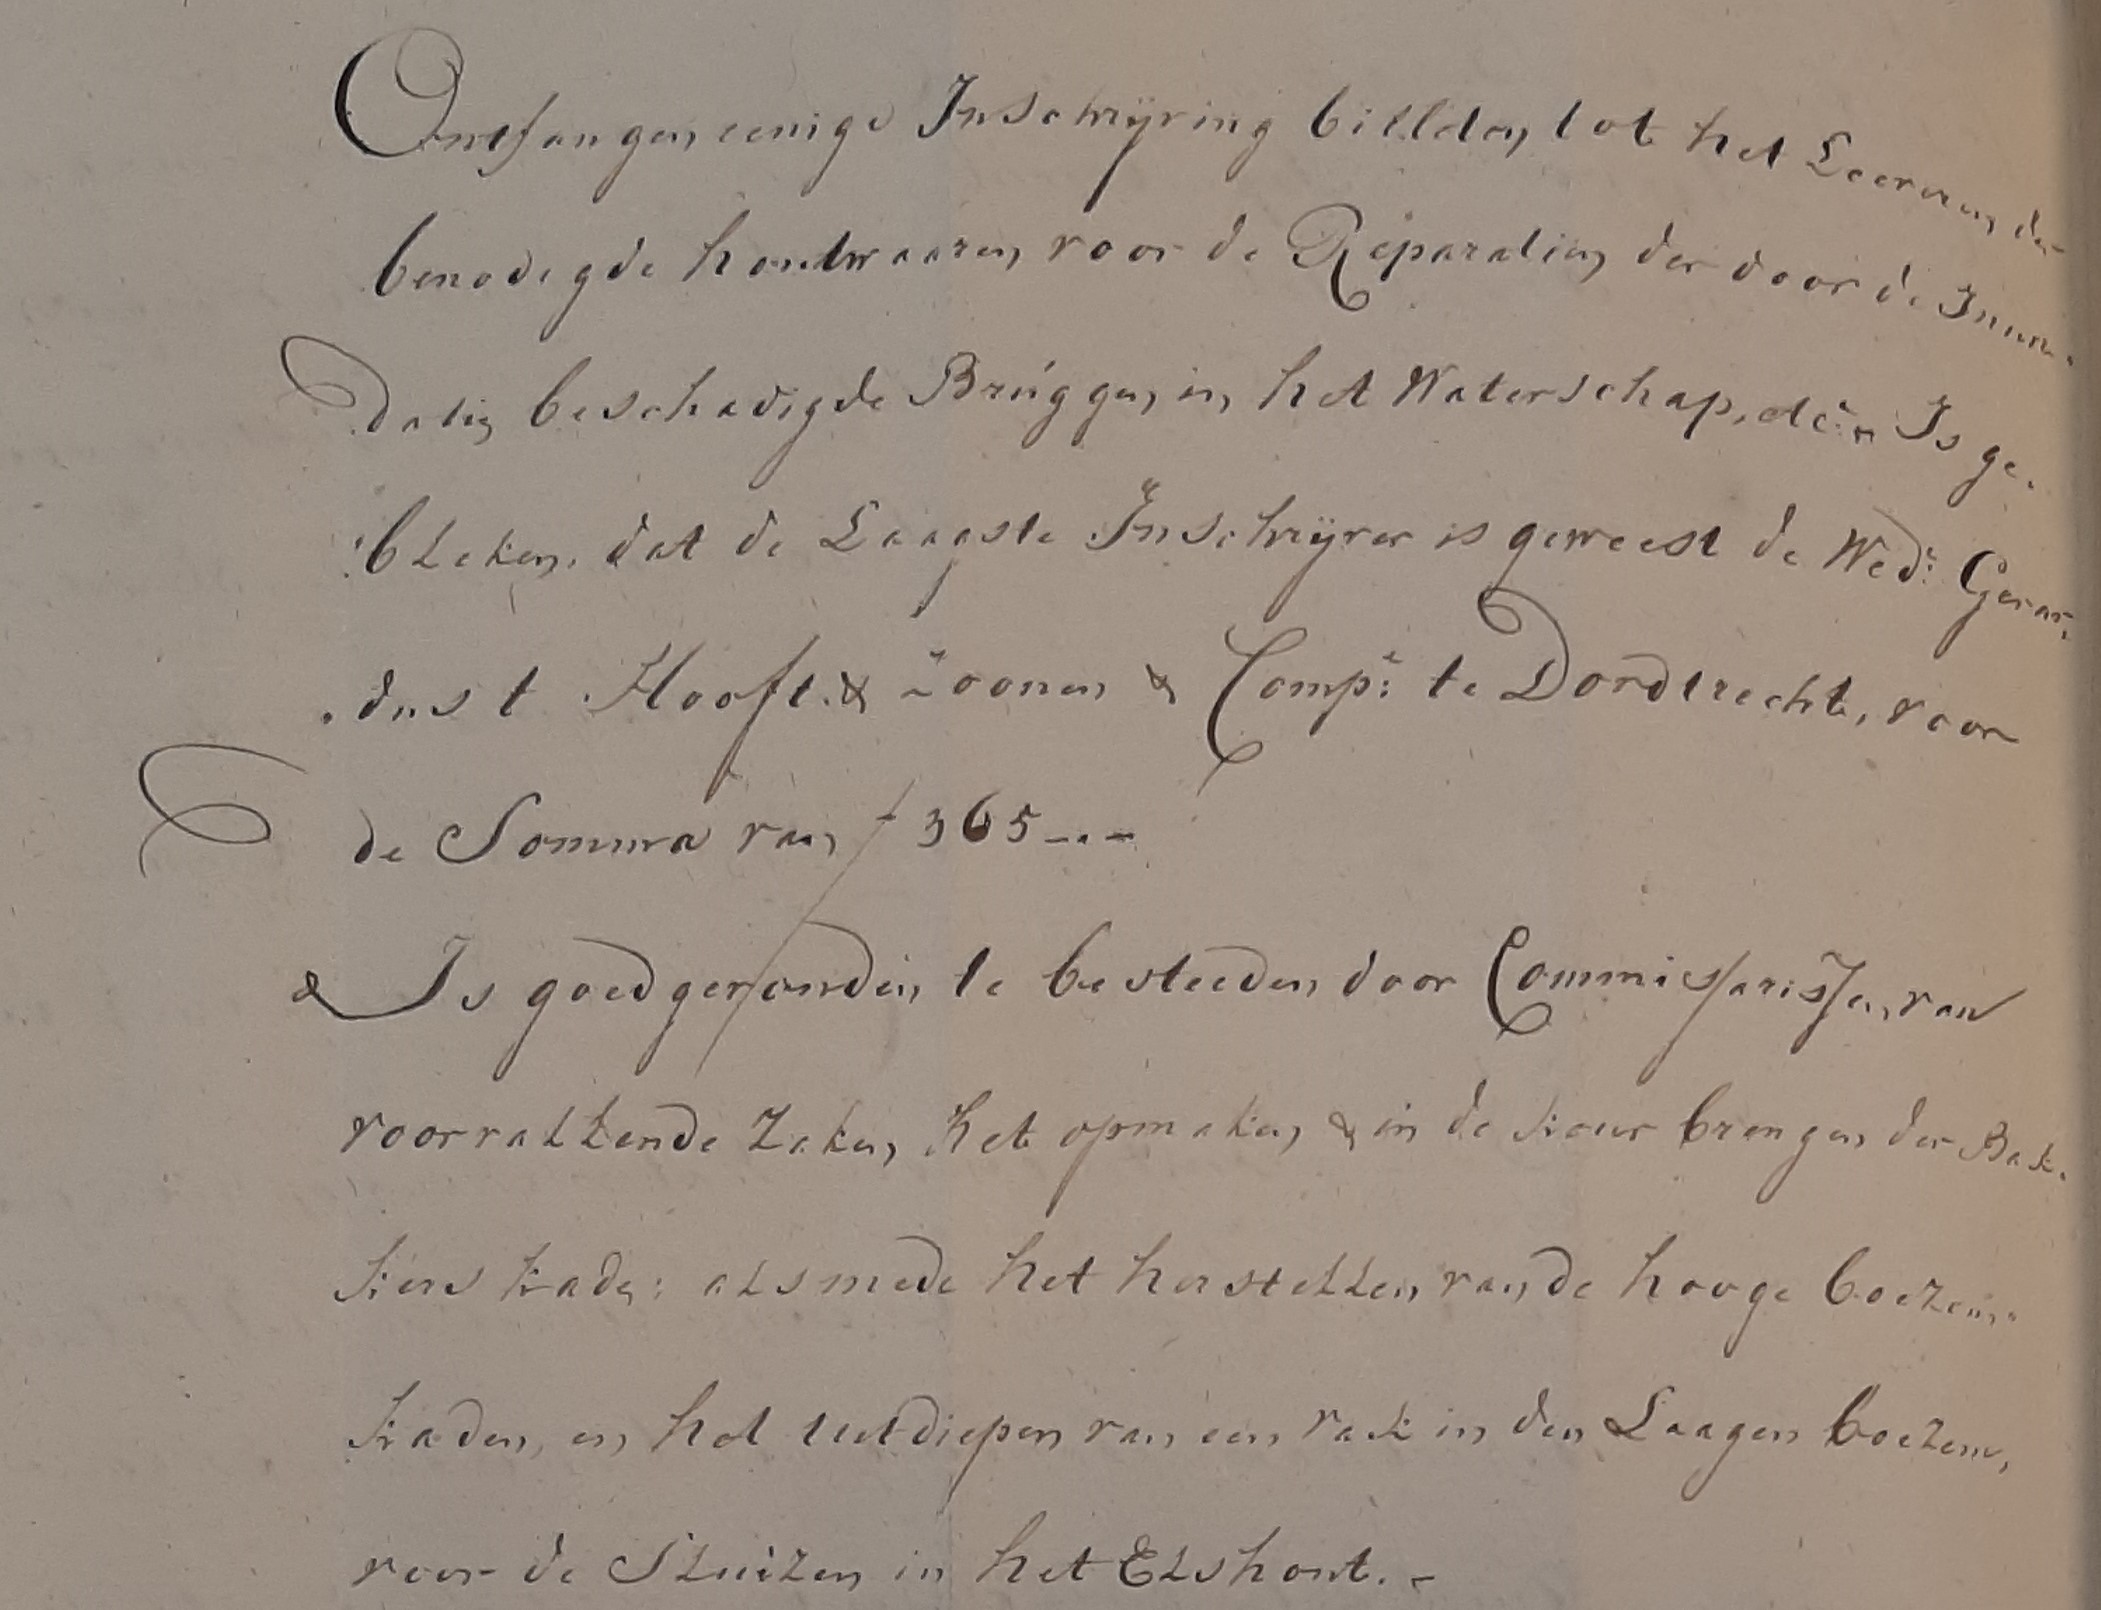 Ontfangen eenige Inschrijving billden tot het Leeveren der
benodigde houtwaaren voor de Reparatien der door de Inun.
datie beschadigde Bruggen in het Waterschap, etc.a Is ge.
bleken. dat de Laagste Inschrijver is geweest de Wed:e Gerar.
.dus t Hooft. & Zoonen & Comp:e te Dordtrecht, voor
de Somma van ƒ 365 -.-
& Is goedgevonden te besteeden door Commissarissen van
voorvallende Zaken, het opmaken & in de keur brengen der Bak.
kers kade: alsmede het herstellen van de hooge boezem.
kaden, en het uitdiepen van een rak in den Laagen boezem,
voor de Sluizen in het Elshout. -